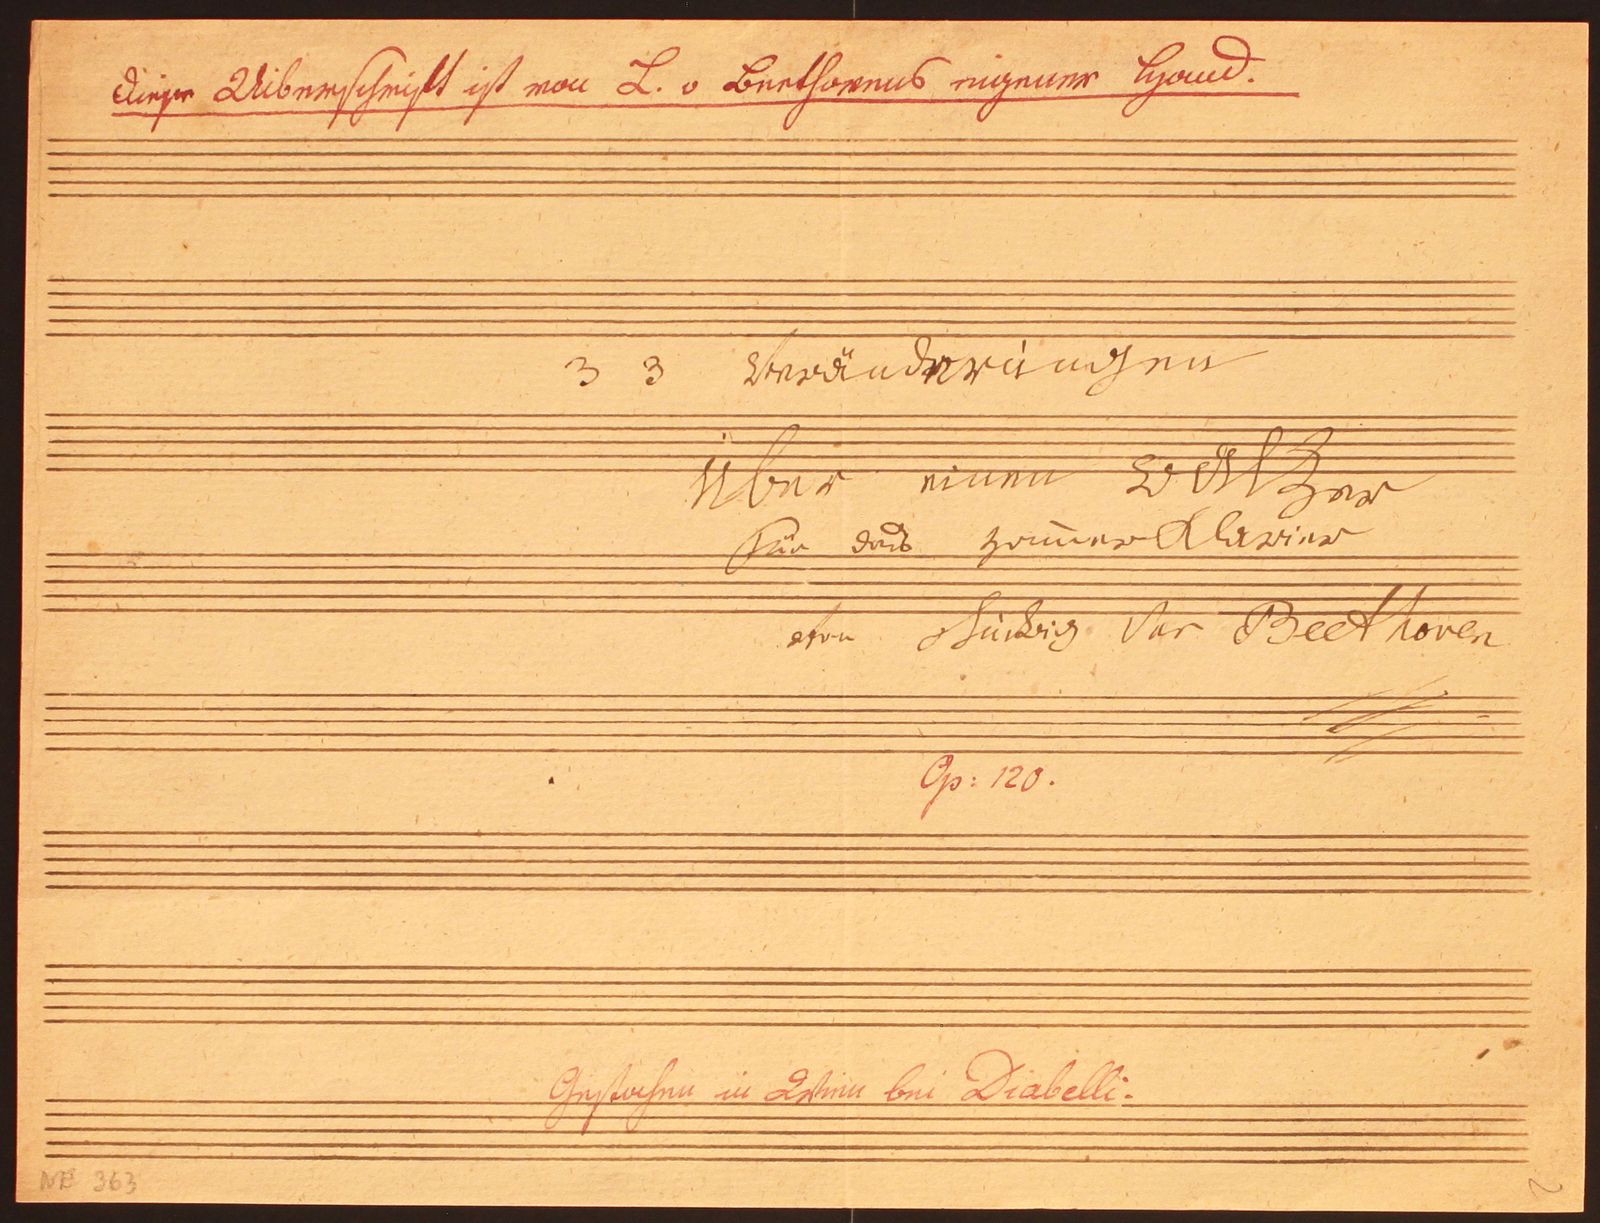 Diese Uiberschrift ist von L. v Beethovens eigener Hand.
33 Veränderungen
über einen walzer
für das Hammer Klavier
von Ludwig van Beethoven
Op: 120.
Gestochen in Wien bei Diabelli.
NE 363
2